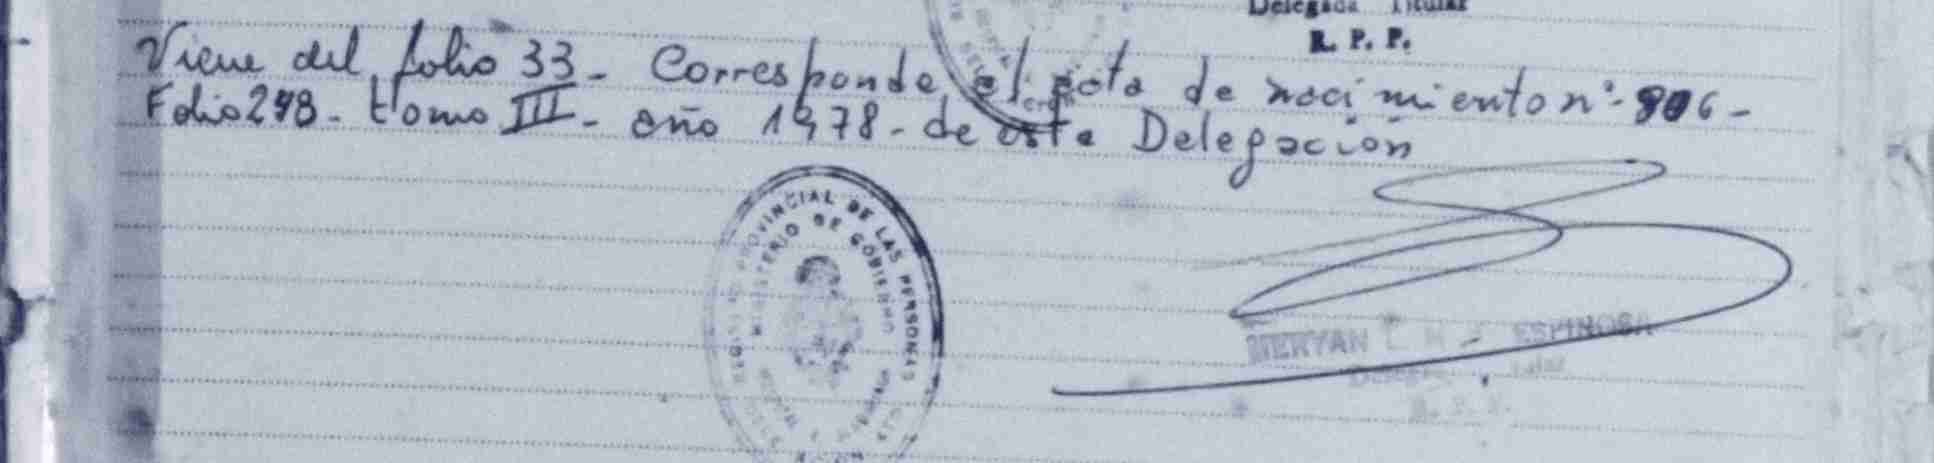 Delegada Titular
R. P. P.
Viene del folio 33 - Corresponde al acta de nacimiento nº - 906 -
Folio 298 - tomo III - año 1978 - de esta Delegación
PROVINCIAL DE LAS PERSONAS
MINISTERIO DE GOBIERNO
MERYAN ESPINOSA
R. P. P.